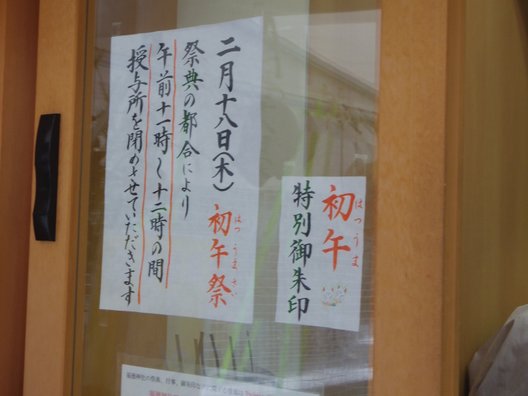 二月十八日(木)
初午祭
はつうまさい
祭典の都合により
午前十一時〜十二時の間
授与所を閉めさせていただきます
初午
はつうま
特別御朱印